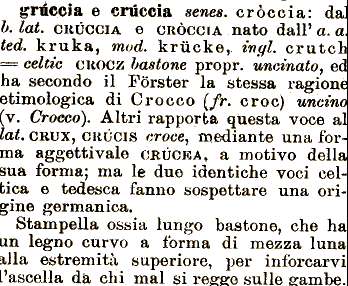 grúccia e crúccia senes. cròccia: dal
b. lat. CRÚCCIA e CRÒCCIA nato dall'a. a.
ted. kruka, mod. krücke, ingl. crutch
= celtic CROCZ bastone propr. uncinato, ed
ha secondo il Förster la stessa ragione
etimologica di Crocco (fr. croc) uncino
(v. Crocco). Altri rapporta questa voce al
lat. CRUX, CRÚCIS croce, mediante una for-
ma aggettivale CRÚCEA, a motivo della
sua forma; ma le due identiche voci cel-
tica e tedesca fanno sospettare una ori-
gine germanica.
Stampella ossia lungo bastone, che ha
un legno curvo a forma di mezza luna
alla estremità superiore, per inforcarvi
l'ascella da chi mal si regge sulle gambe.